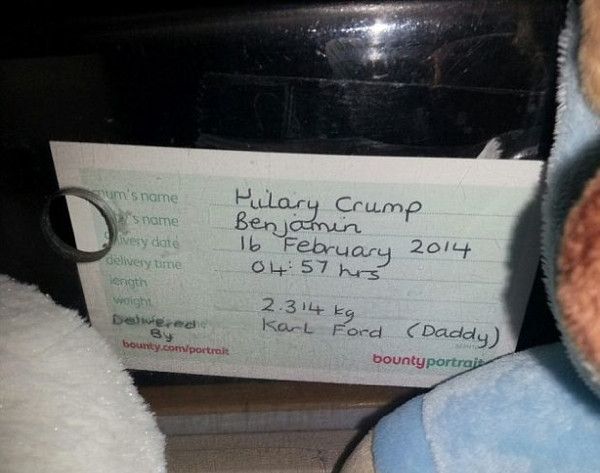 mum's name Hilary Crump
's name Benjamin
delivery date 16 February 2014
delivery time 04:57 hrs
length
weight 2.314 kg
Delivered By Karl Ford (Daddy)
bounty.com/portrait bountyportrait